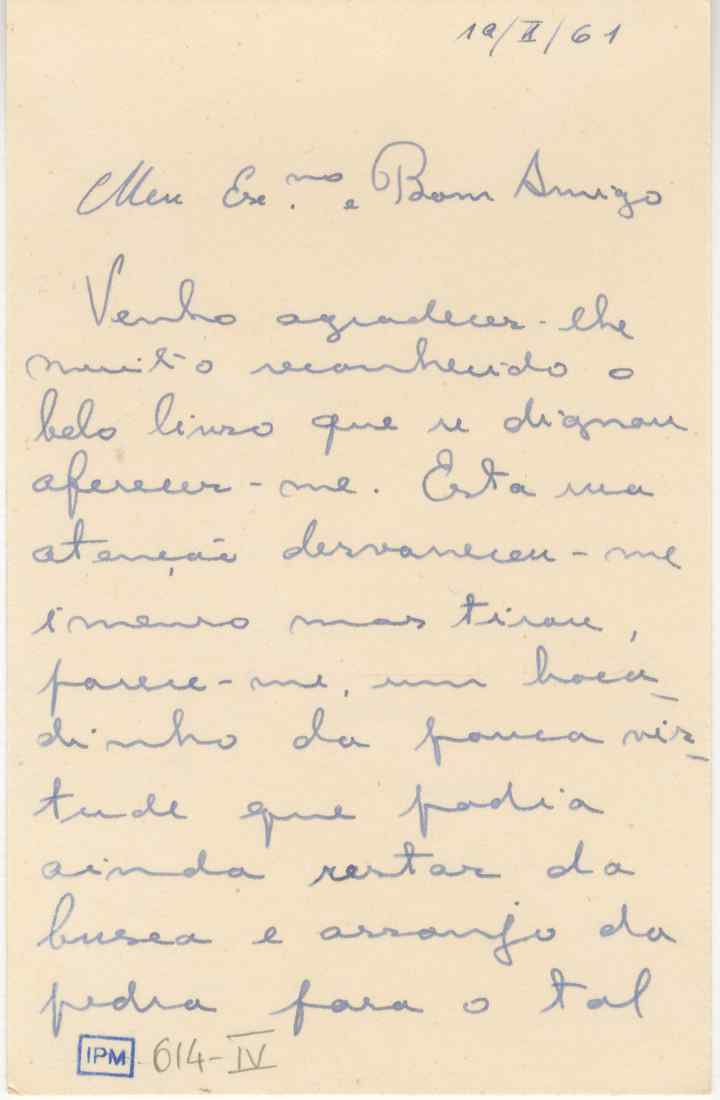 19/II/61
Meu Exc.mo e Bom Amigo
Venho agradecer-lhe
muito reconhecido o
belo livro que se dignou
oferecer-me. Esta sua
atenção desvaneceu-me
imenso mas tirou,
parece-me, um boca-
dinho da pouca vir-
tude que podia
ainda restar da
busca e arranjo da
pedra para o tal
IPM 614-IV